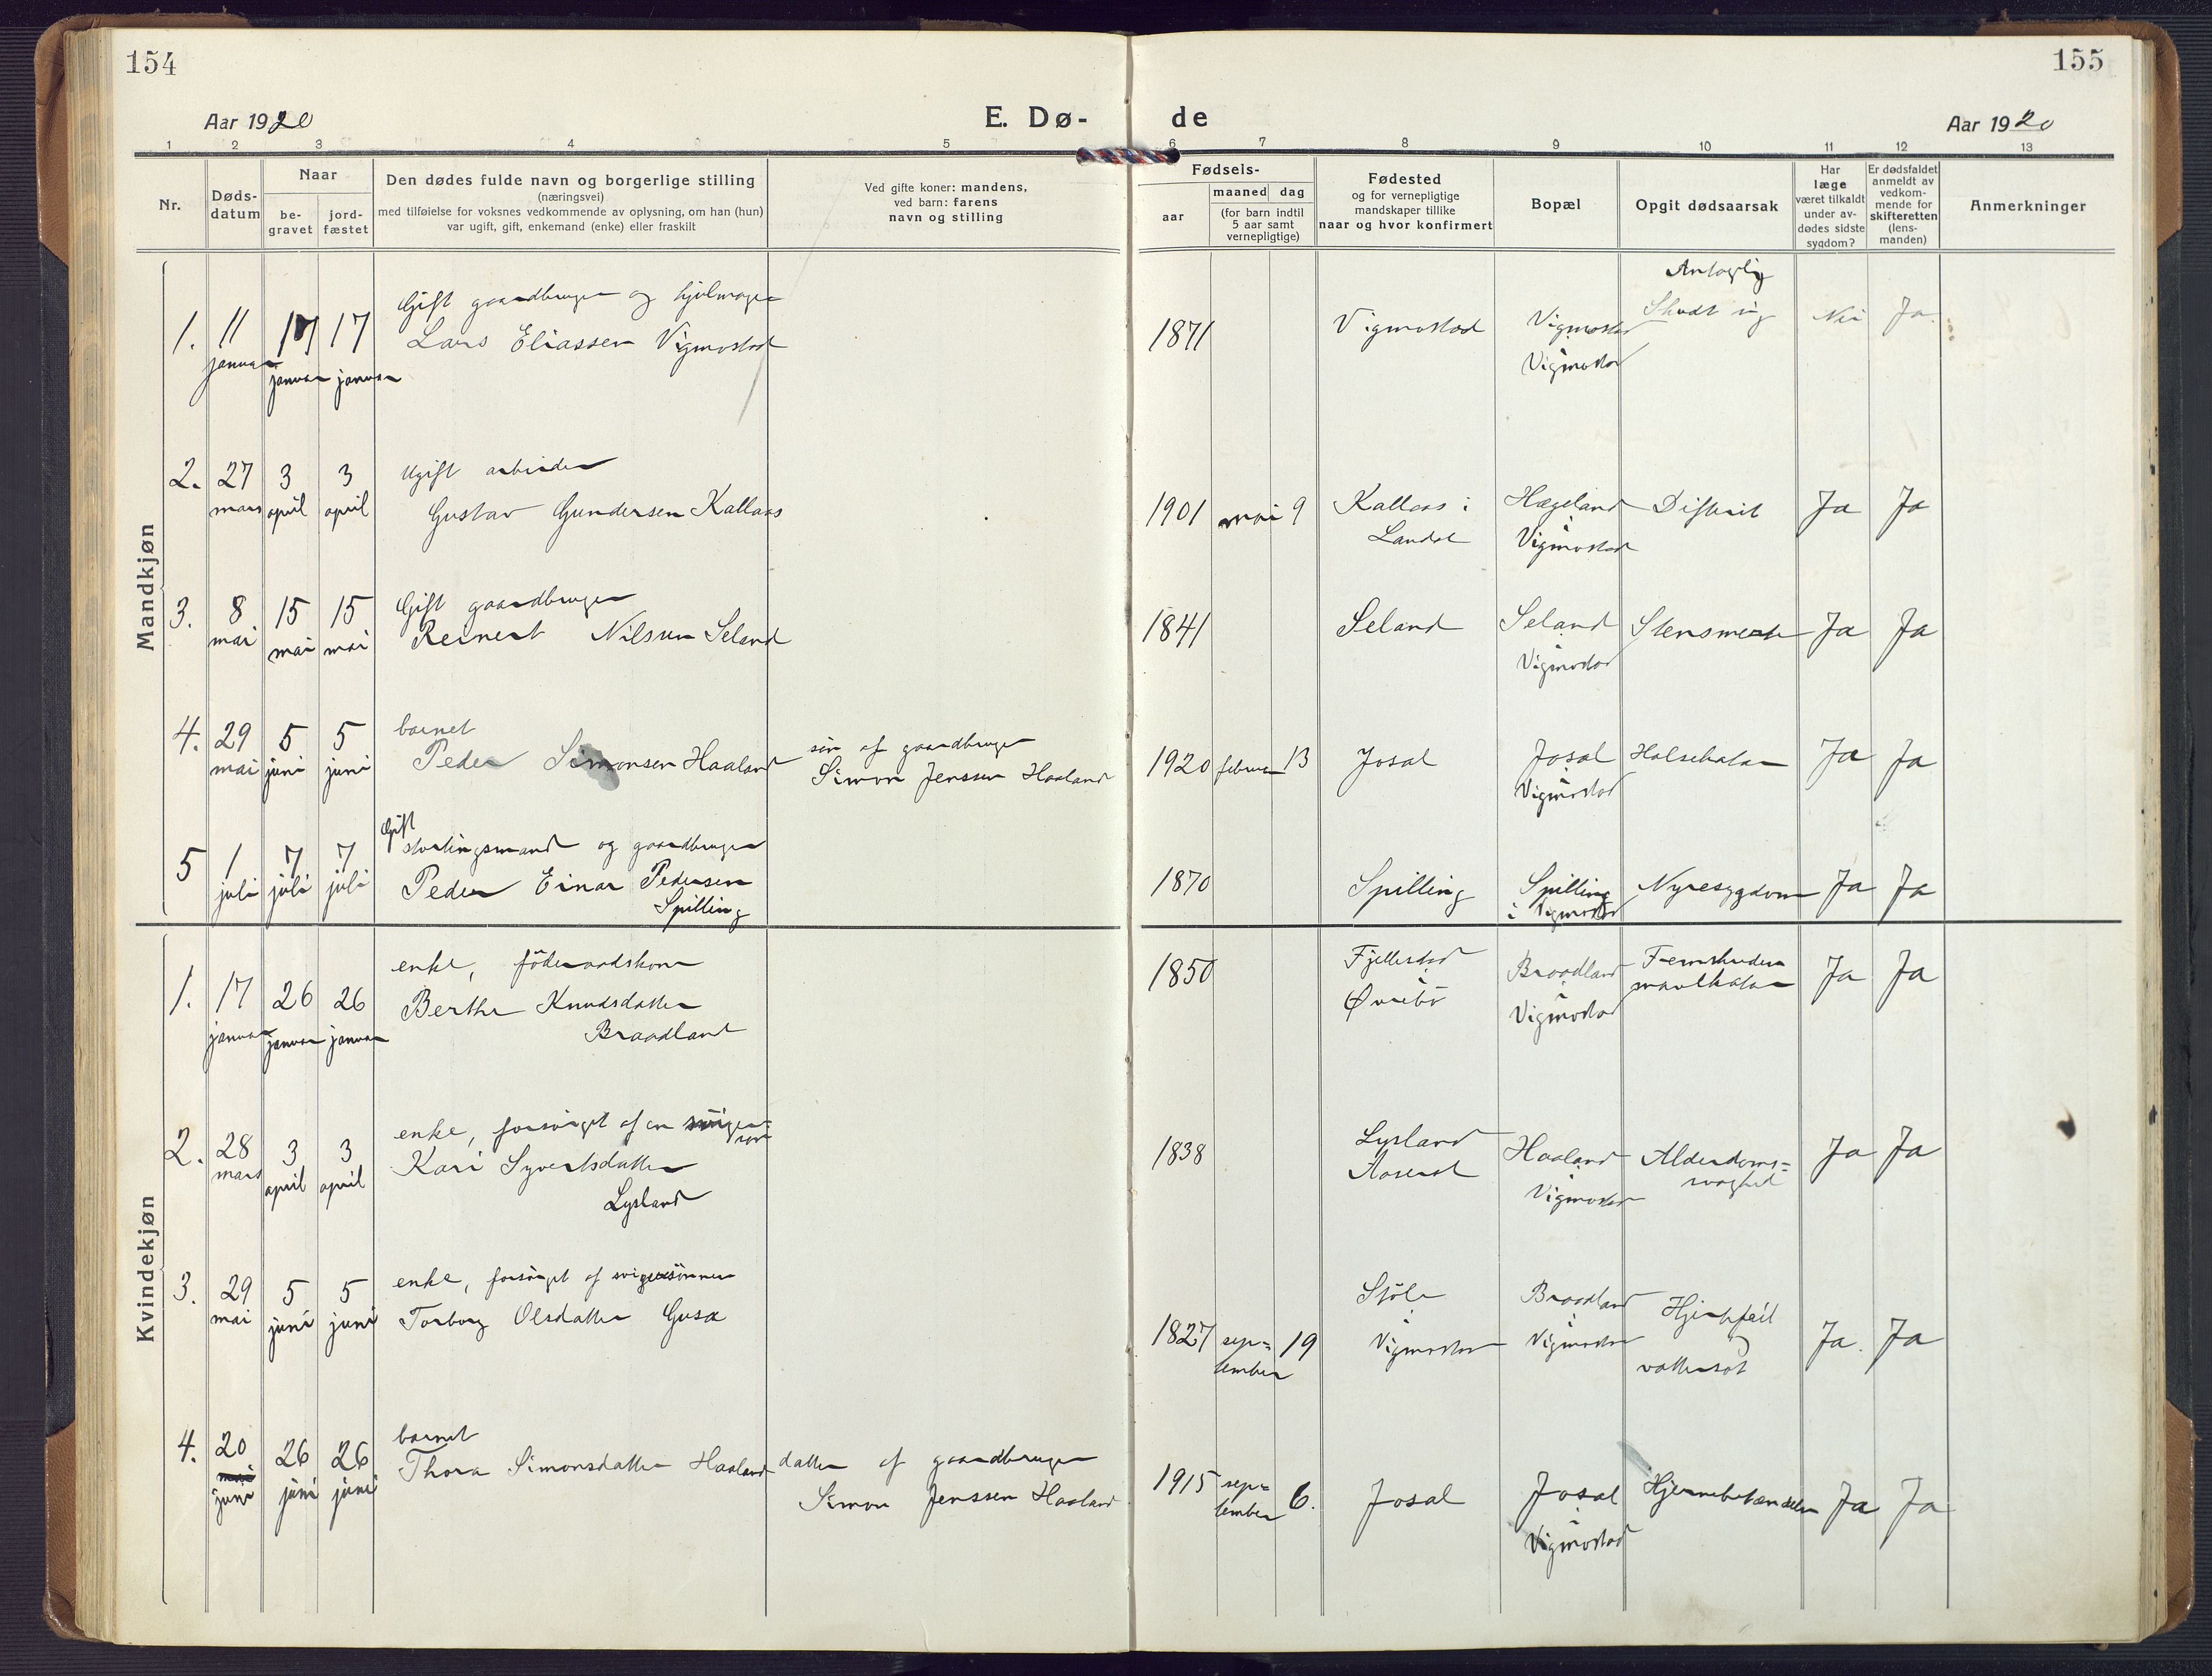 154
155
Aar 1920
E. Dø-
de
Aar 1920
1 2 3 4 5 6 7 8 9 10 11 12 13
Nr.
Døds-
datum
Naar
be-
gravet
jord-
fæstet
Den dødes fulde navn og borgerlige stilling
(næringsvei)
med tilføielse for voksnes vedkommende av oplysning, om han (hun)
var ugift, gift, enkemand (enke) eller fraskilt
Ved gifte koner: mandens,
ved barn: farens
navn og stilling
Fødsels-
aar
maaned dag
(for barn indtil
5 aar samt
vernepligtige)
Fødested
og for vernepligtige
mandskaper tillike
naar og hvor konfirmert
Bopæl
Opgit dødsaarsak
Har
læge
været tilkaldt
under av-
dødes sidste
sygdom?
Er dødsfaldet
anmeldt av
vedkom-
mende for
skifteretten
(lens-
manden)
Anmerkninger
Mandkjøn
1. 11 januar 17 januar 17 januar
Gift gaardbruger og hjulmager
Lars Eliassen Vigmostad
1871
Vigmostad
Vigmostad
i
Vigmostad
Antagelig
Skudt sig
Nei Ja.
2. 27 mars 3 april 3 april
Ugift arbeider
Gustav Gundersen Kallaas
1901 mai 9
Kallaas i
Landet
Hægeland
i
Vigmostad
Difterit
Ja Ja
3. 8 mai 15 mai 15 mai
Gift gaardbruger
Reinert Nilssen Seland
1841
Seland
Seland
i
Vigmostad
Stensmerte
Ja Ja
4. 29 mai 5 juni 5 juni
barnet
Peder Simonsen Haaland
søn af gaardbruger
Simon Jenssen Haaland
1920 februar 13
Josal
Josal
i
Vigmostad
Halsekatar
Ja Ja
5 1 juli 7 juli 7 juli
Gift
stortingsmand og gaardbruger
Peder Einar Pedersen
Spilling
1870
Spilling
Spilling
i Vigmostad
Nyresygdom
Ja Ja
Kvindekjøn
1. 17 januar 26 januar 26 januar
enke, föderaadskone
Berthe Knudsdatter
Braadland
1850
Fjellestad
i
Øvrebö
Braadland
i
Vigmostad
Ja Ja
2. 28 mars 3 april 3 april
enke, forsörget af en sviger=
sön
Kari Syvertsdatter
Lysland
1838
Lysland
Aaseral
Haaland
i
Vigmostad
Alderdoms=
svaghed
Ja Ja
3. 29 mai 5 juni 5 juni
enke, forsörget af svigersönnen
Torborg Olsdatter Guse
1827 sep=
tember 19
Stöle
i
Vigmostad
Braadland
i
Vigmostad
Hjertefeil
og
vattersot
Ja. Ja
4. 20 mai juni 26 juni 26 juni
barnet
Thora Simonsdatter Haaland
datter af gaardbruger
Simon Jenssen Haaland
1915 sep=
tember 6.
Josal
Josal
i
Vigmostad
Hjernebetændelse
Ja Ja